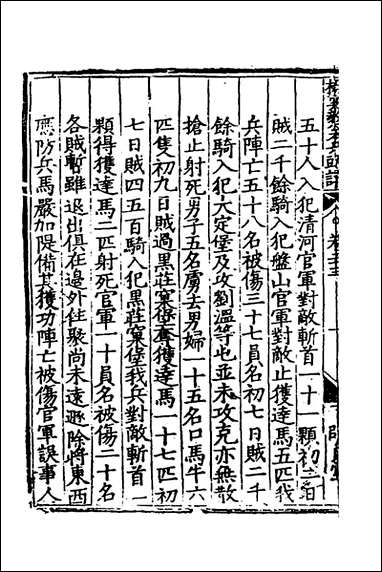 五十人入犯清河官軍對敵斬首一十一顆初三日
賊二千餘騎入犯盤山官軍對敵止獲達馬五匹我
兵陣亡五十八名被傷三十七員名初七日賊二千
餘騎入犯大定堡及攻劉溫等屯並未攻克亦無散
搶止射死男子五名虜去男婦一十五名口馬牛六
匹隻初九日賊過黑莊窠堡奪獲達馬一十七匹初
七日賊四五百騎入犯黑莊窠堡我兵對敵斬首一
顆得獲達馬二匹射死官軍一十員名被傷二十名
各賊暫雖退出俱在邊外住聚尚未遠遯除將東西
應防兵馬嚴加隄備其獲功陣亡被傷官軍誤事人